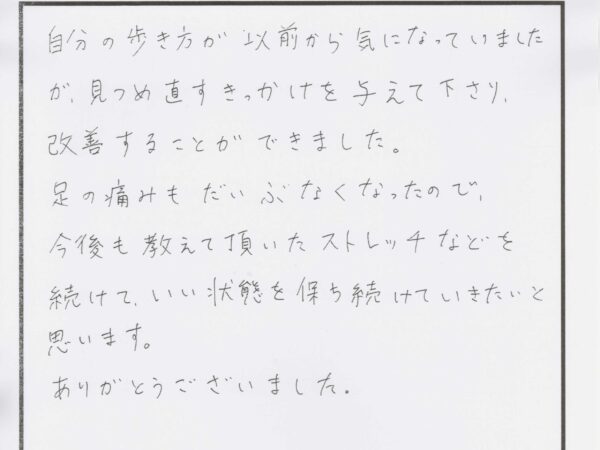 自分の歩き方が以前から気になっていました
が、見つめ直すきっかけを与えて下さり、
改善することができました。
足の痛みもだいぶなくなったので、
今後も教えて頂いたストレッチなどを
続けて、いい状態を保ち続けていきたいと
思います。
ありがとうございました。